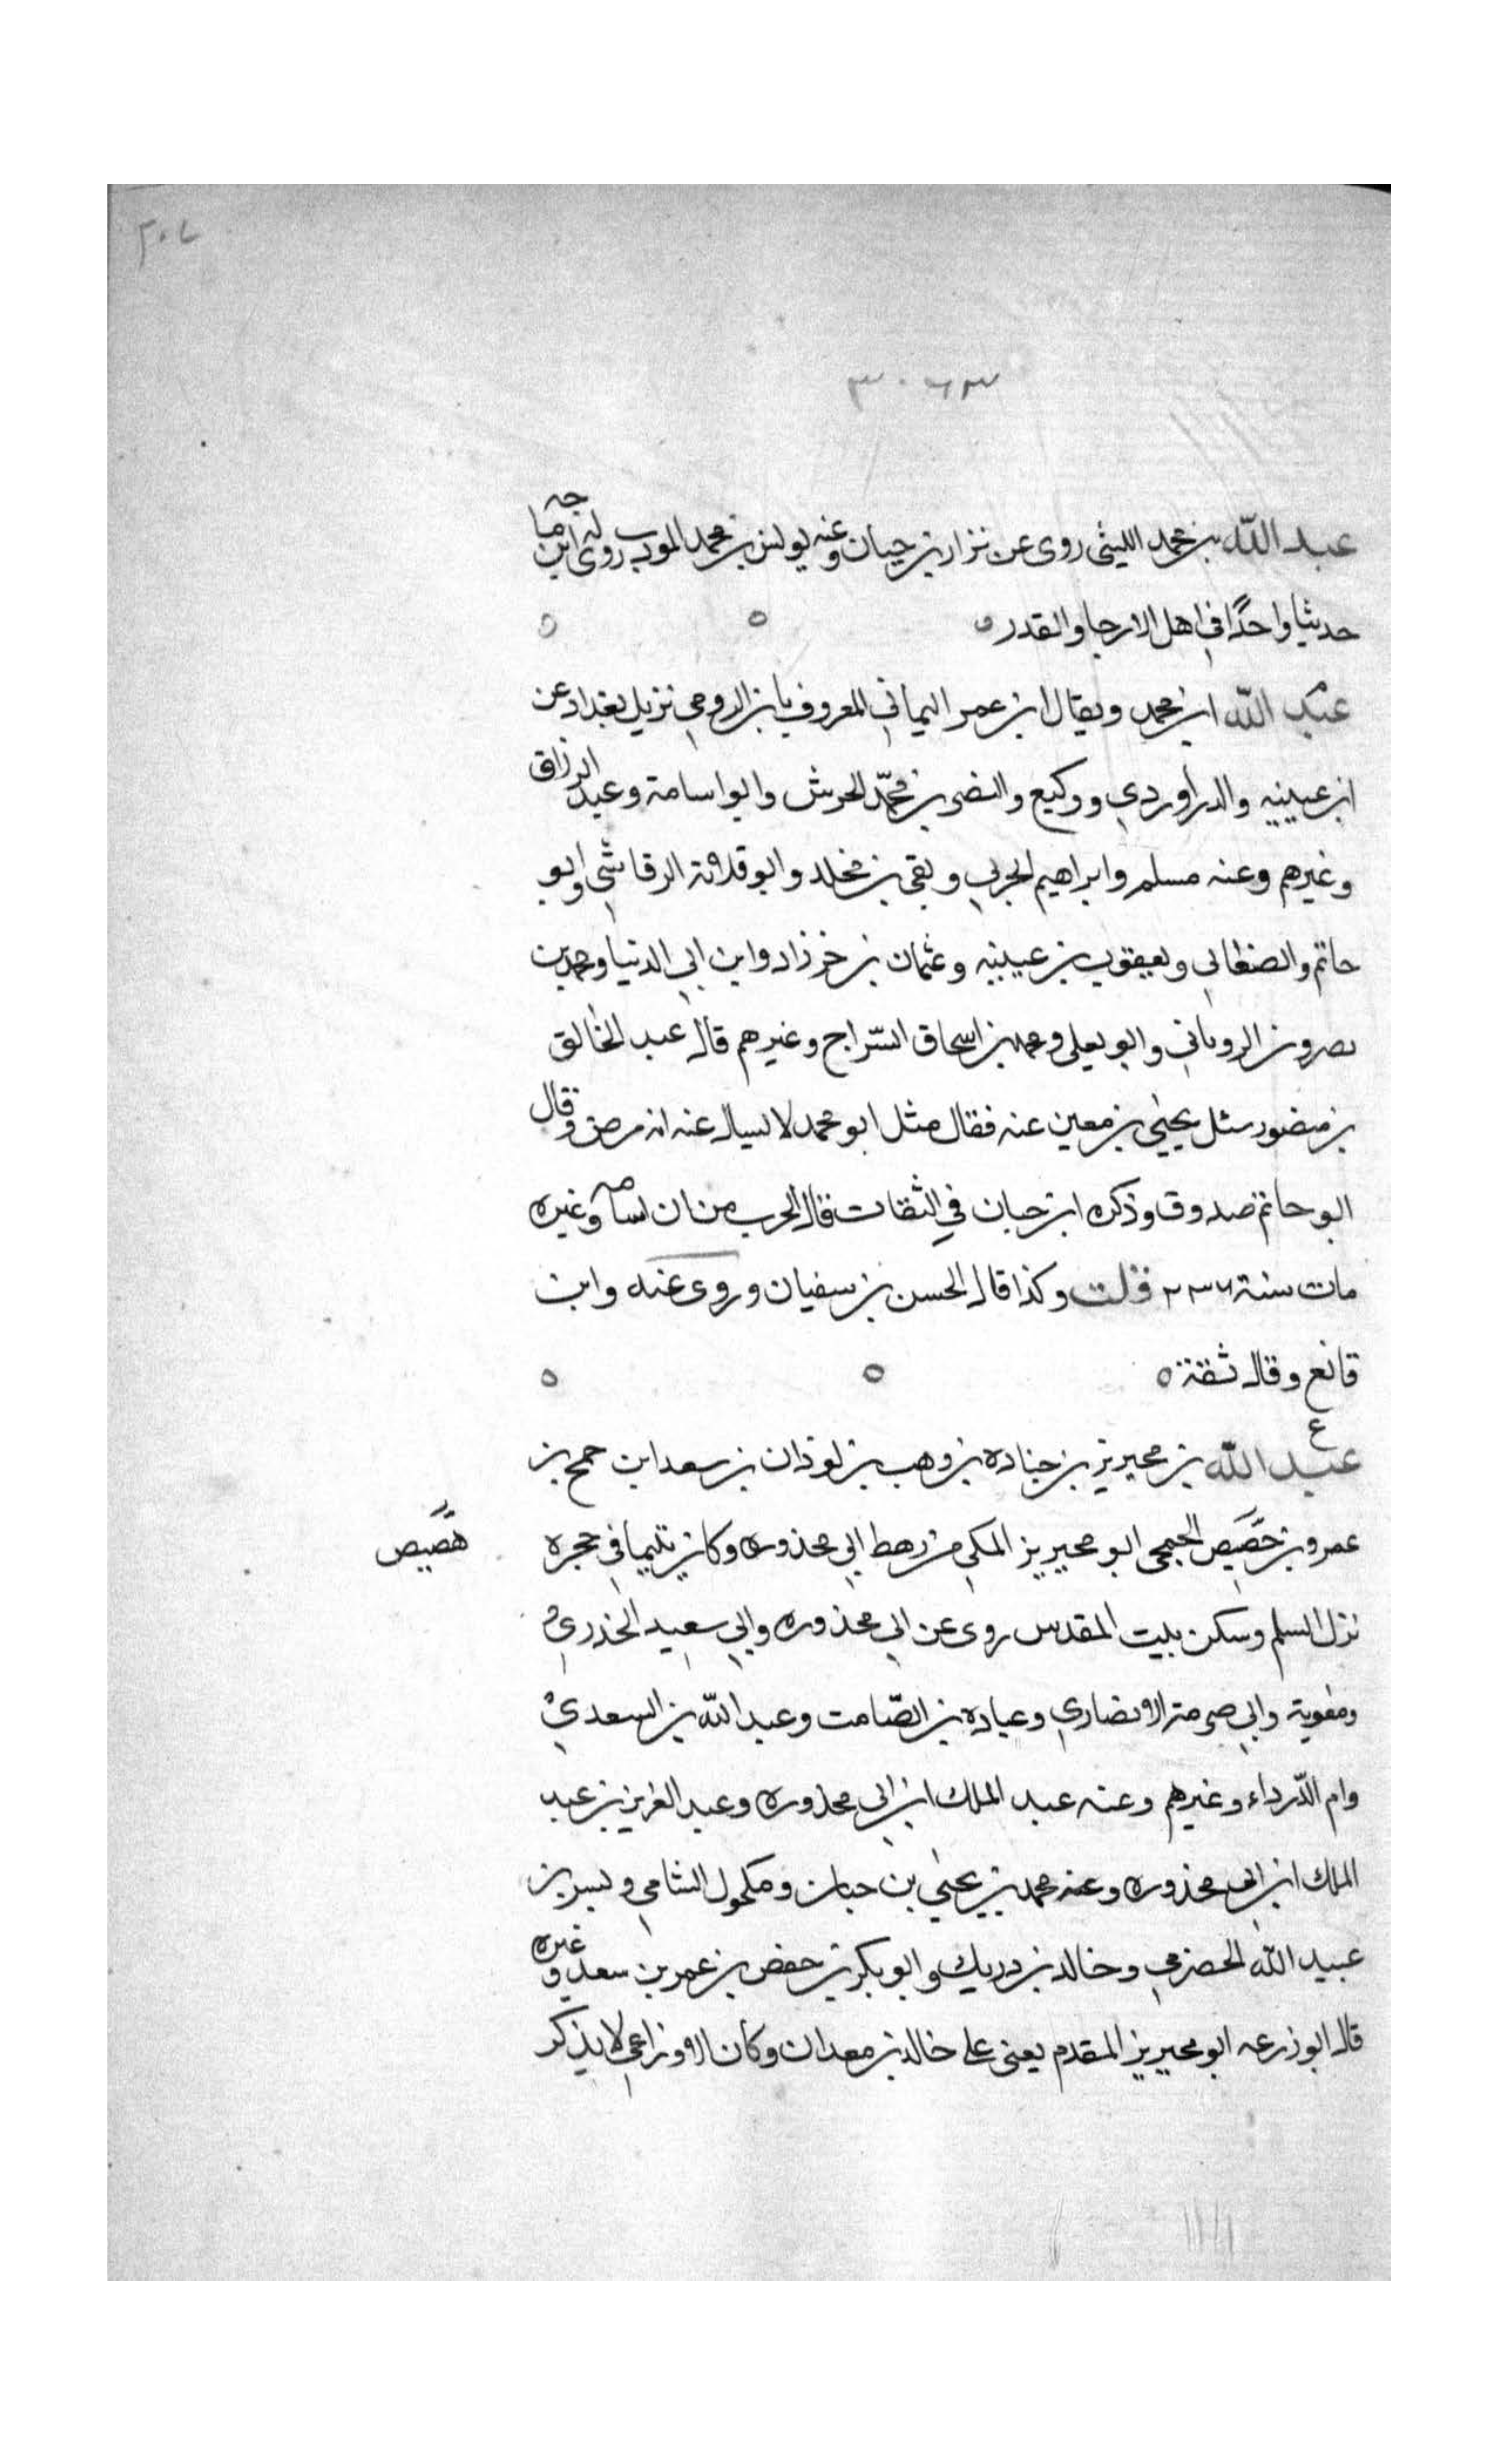 ٢٠٧
عبد الله بن محمد الليثي روى عن نزار بن حيان وعنه يونس بن محمد المودب روى له ابن ماجه
حديثا واحدًا في اهل الارجا والقدر ه ه ه
م
عبد الله ابن محمد ويقال ابن عمر اليماني المعروف بابن الرومي نزيل بغداد عن
ابن عيينه والدراوردي ووكيع والنضر بن محمّد الحرشي وابو اسامة وعبد الرزاق
وغيرهم وعنه مسلم وابراهيم الحربي وبقي بن مخلد وابو قلابة الرقاشي وابو
حاتم والصنعاني ويعقوب بن عيينه وعثمان بن خرزاد وابن ابي الدنيا ومحمد بن
هارون الروياني وابو يعلى ومحمد بن اسحاق السّراج وغيرهم قال عبد الخالق
بن منصور سئل يحيى بن معين عنه فقال مثل ابو محمد لا يسال عنه انه مرض وقال
ابو حاتم صدوق وذكره ابن حبان في الثقات قال الحرب وغيره
مات سنة ٢٣٦ قلت وكذا قال الحسن بن سفيان وروى عنه وابن
قانع وقال ثقة ه ه ه
ع
عبد الله بن محيريز بن جناده بن وهب بن لوذان بن سعد ابن جمح بن
عمرو بن حصَيص الجمحي ابو محيريز المكي من رهط ابي محذوره وكان يتيما في حجره
هصَيص
نزل السلم وسكن بيت المقدس روى عن ابي محذوره وابي سعيد الخدري
ومعوية وابي صرمة الانصاري وعباده بن الصّامت وعبد الله بن السعدي
وام الدّرداء وغيرهم وعنه عبد الملك ابن ابي محذوره وعبد العزيز بن عبد
الملك ابن ابي محذوره وعنه محمد بن يحيى بن حبان ومكحول الشامي وبسر بن
عبيد الله الحضرمي وخالد بن دريك وابو بكر بن حفص بن عمر بن سعد وغيره
قال ابو زرعه ابو محيريز المقدم يعني على خالد بن معدان وكان الاوزاعي لا يذكر